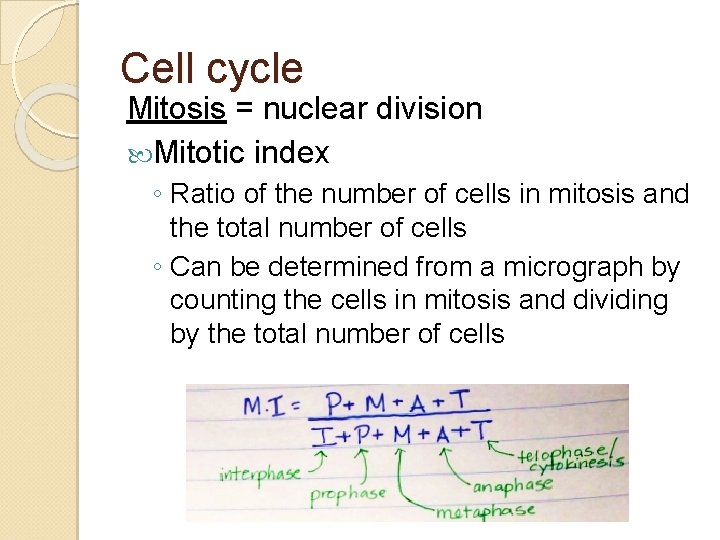 Cell cycle
Mitosis = nuclear division
Mitotic index
◦ Ratio of the number of cells in mitosis and
the total number of cells
◦ Can be determined from a micrograph by
counting the cells in mitosis and dividing
by the total number of cells
M.I = P+ M + A + T
I+P+ M + A+T
interphase
prophase
metaphase
anaphase
telophase/
cytokinesis